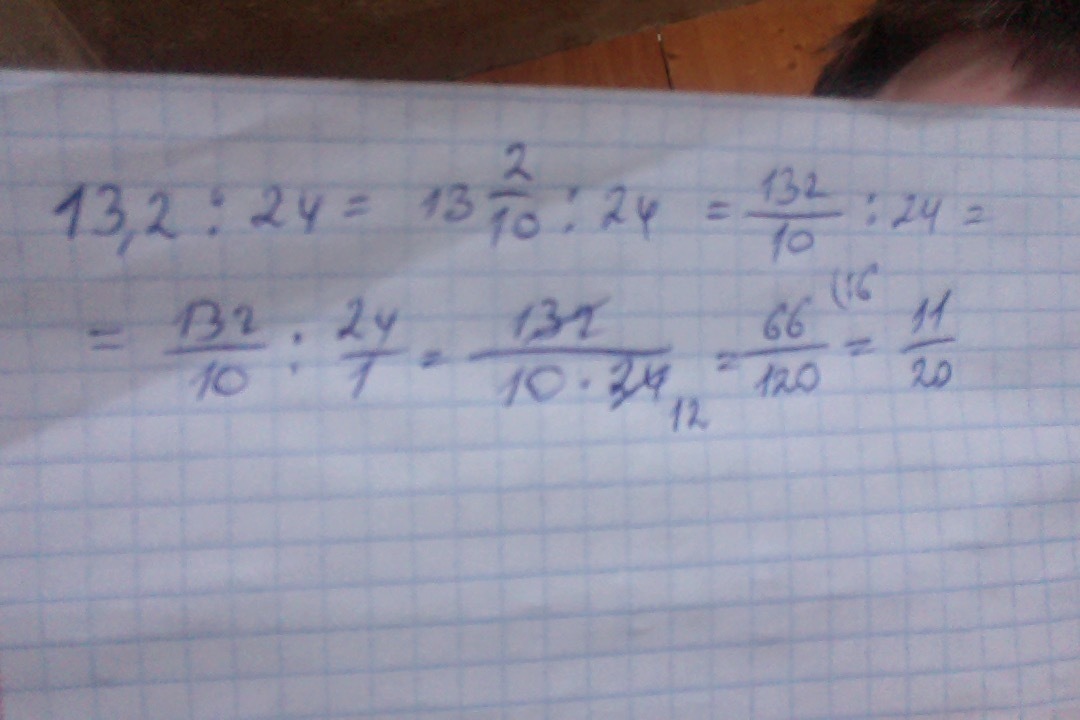 13,2 : 24 = 13 2/10 : 24 = 132/10 : 24 =
= 132/10 : 24/1 = 132/(10 · 24) 12 = 66/120 (:6 = 11/20